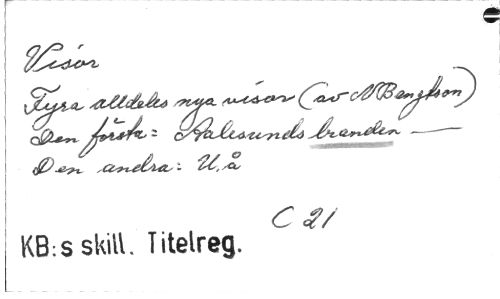 Visor
Fyra alldeles nya visor (av N Bengtson)
Den första: Aalesundsbranden —
Den andra: U. å
C 21
KB:s skill. Titelreg.